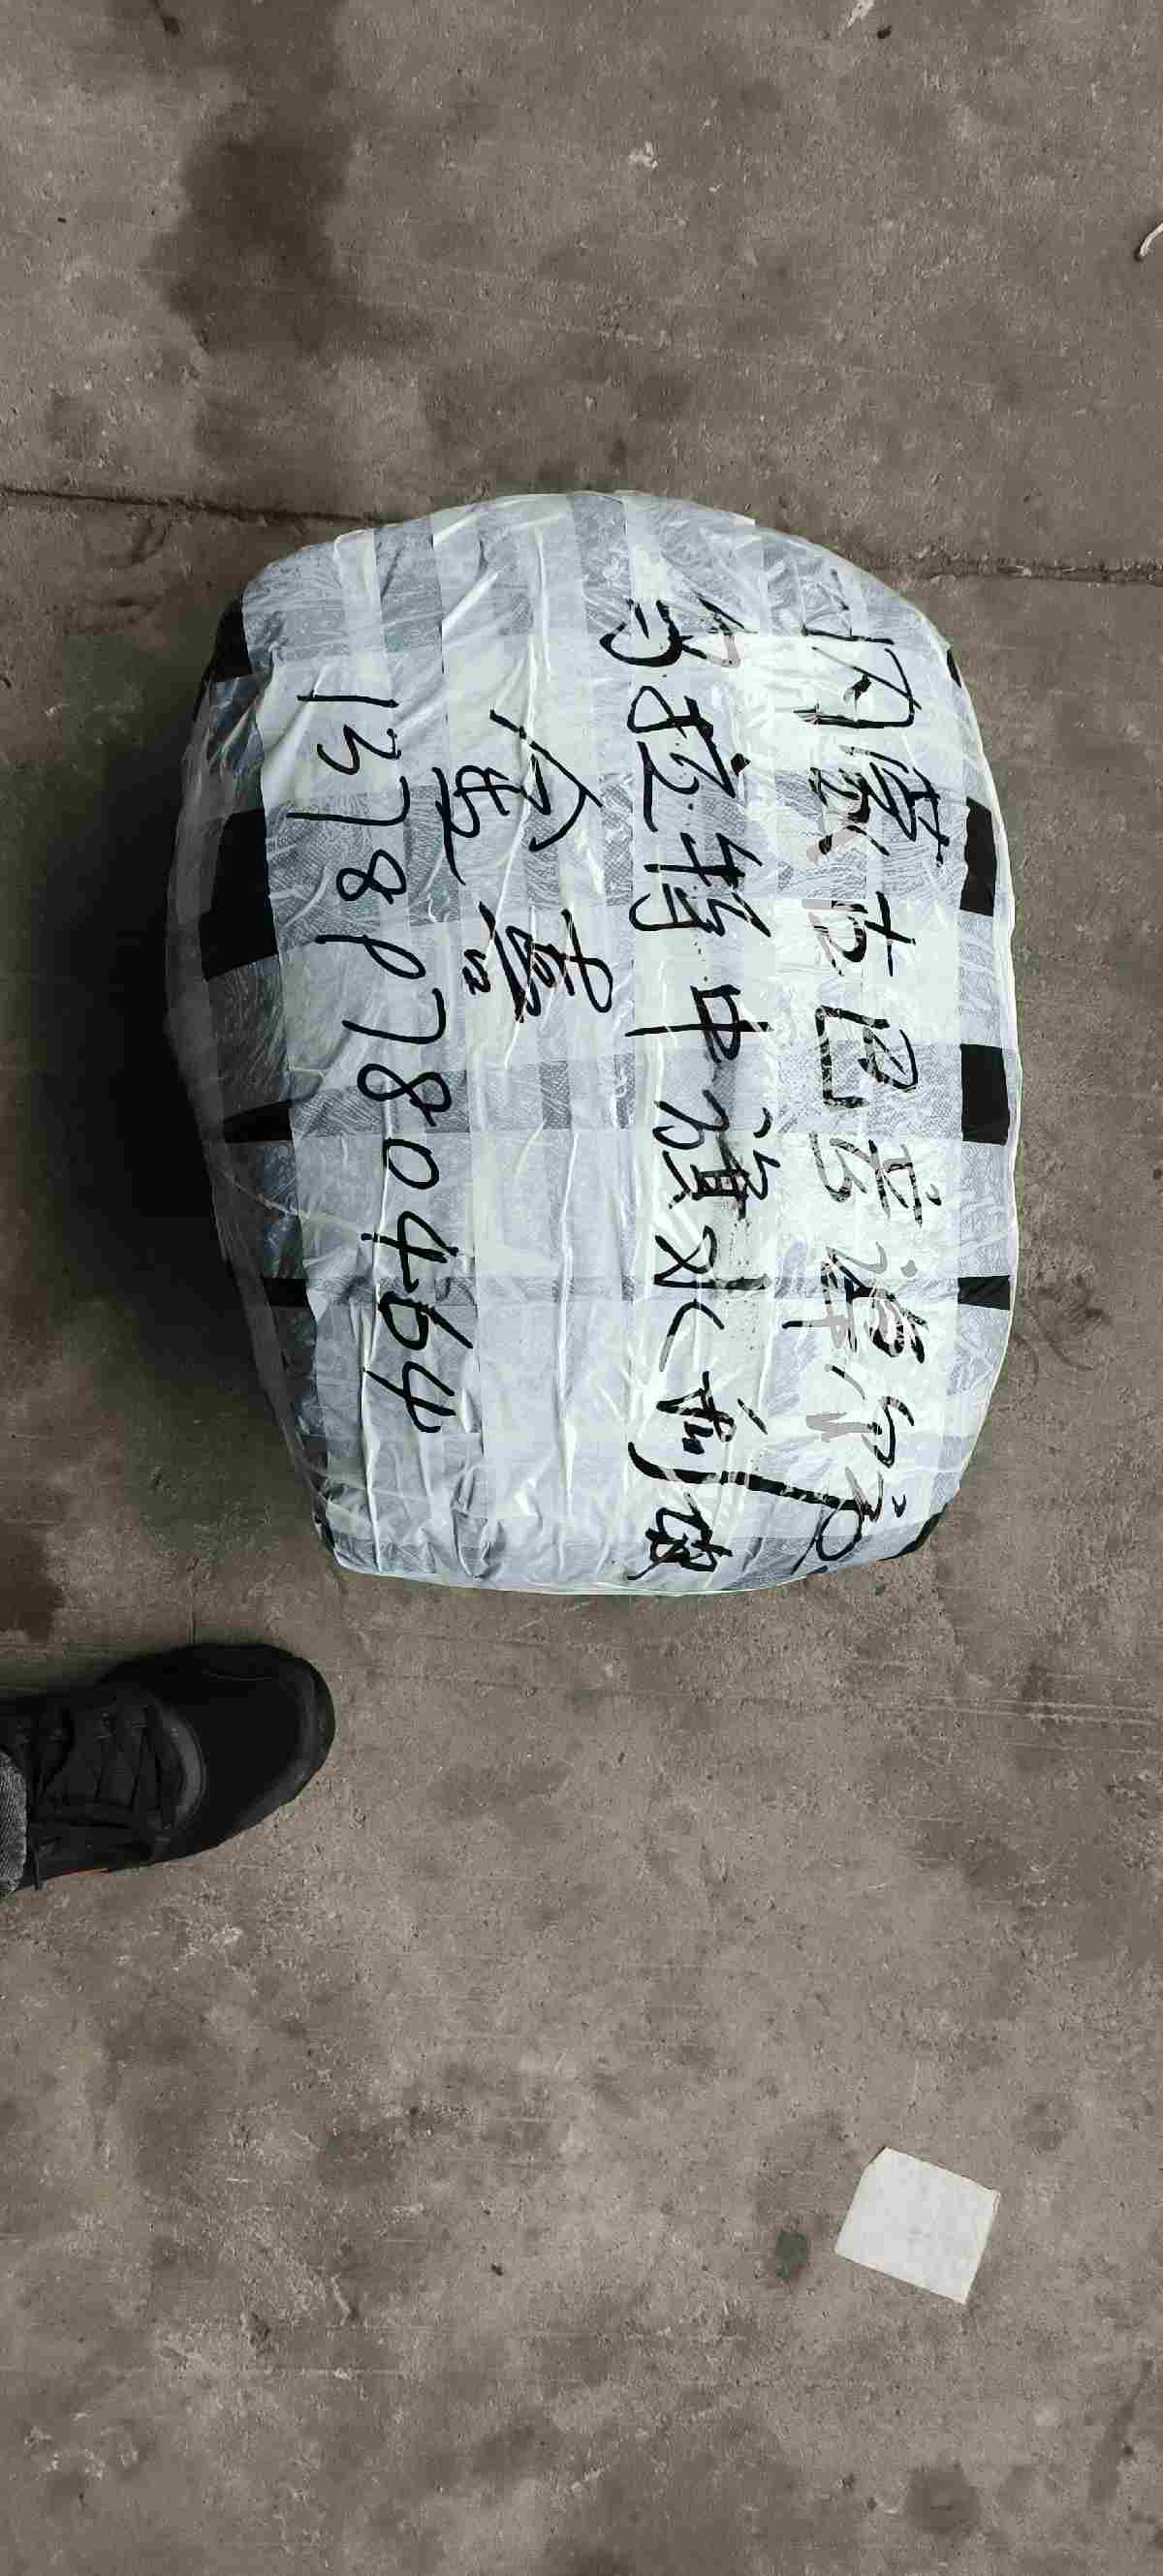 内蒙古巴彦淖尔
乌拉特中旗水利
金
13789780464